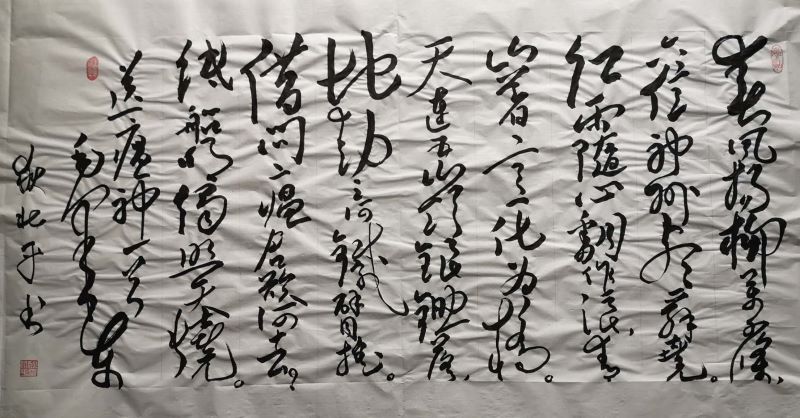 春风杨柳万千條、
六亿神州尽舜尧。
红雨隨心翻作浪、青
山着意化为橋。
天连五岭银锄落、
地动三河铁臂摇。
借问瘟君欲何去?
纸船明烛照天烧。
送瘟神一首
毛泽东
北平书